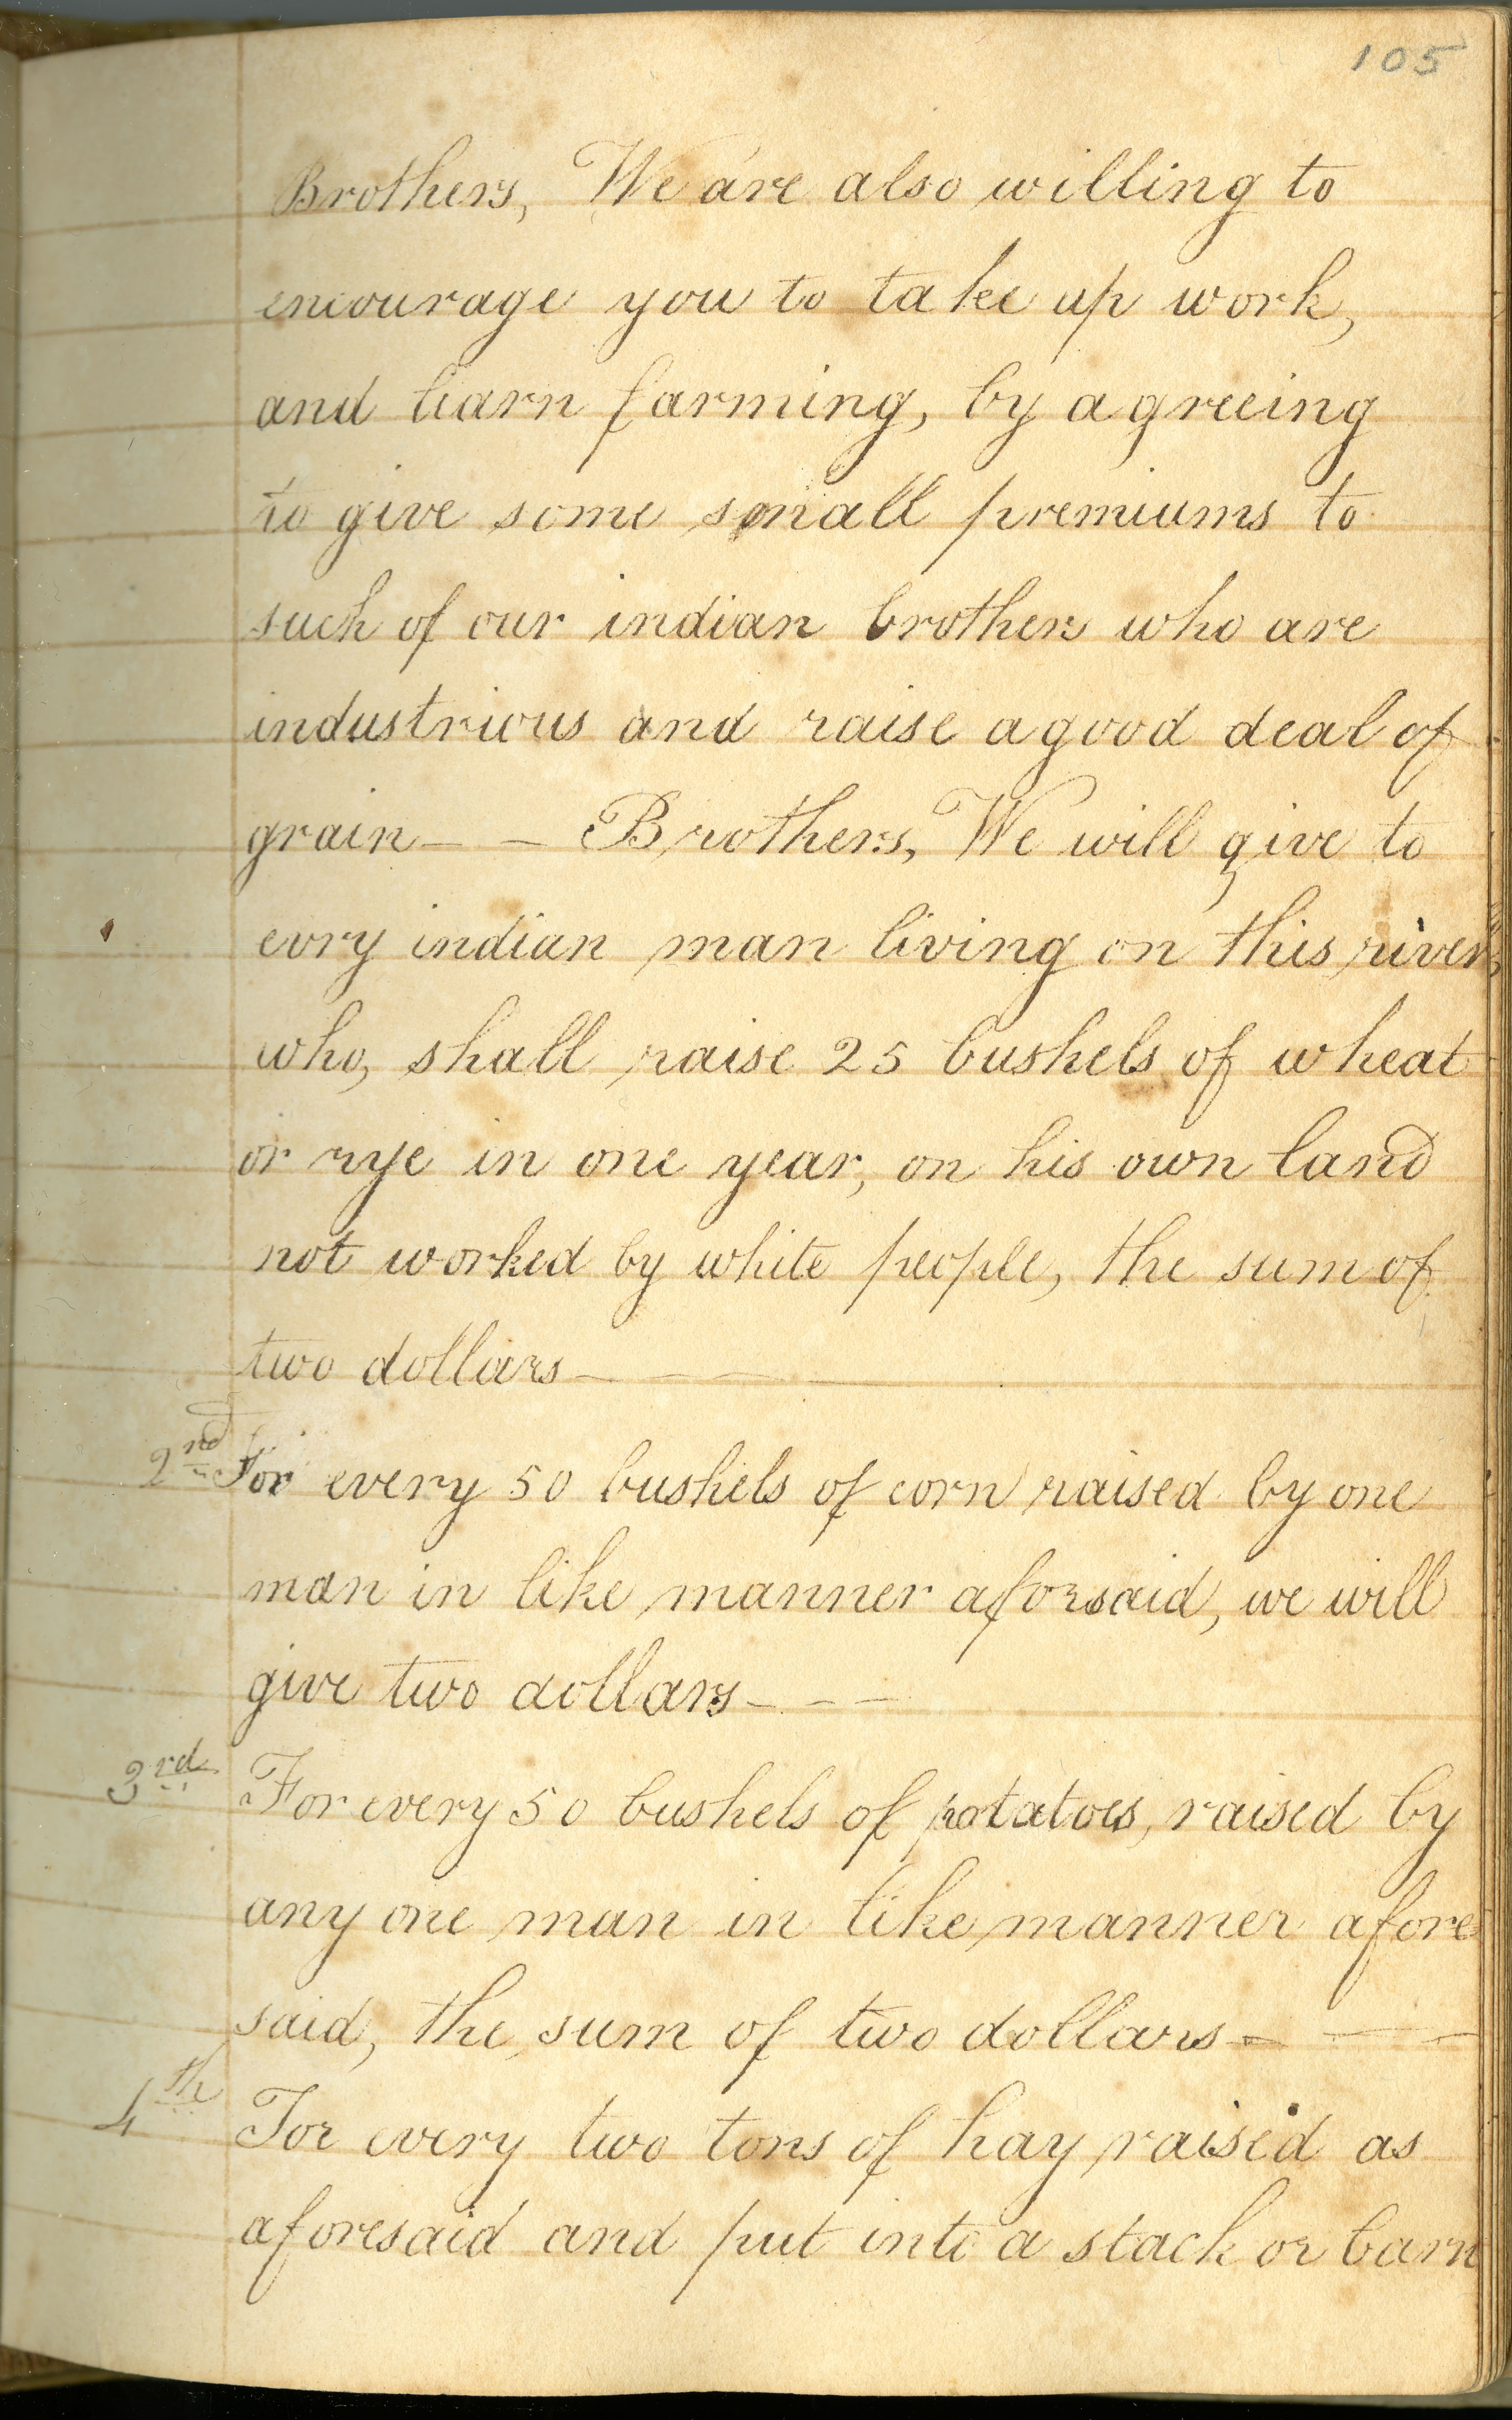 105
Brothers, We are also willing to
encourage you to take up work,
and learn farming, by agreeing
to give some small premiums to
such of our indian brothers who are
industrious and raise a good deal of
grain — — Brothers, We will give to
evry indian man living on this river,
who, shall raise 25 bushels of wheat
or rye in one year, on his own land
not worked by white people, the sum of
two dollars — — —
2nd For every 50 bushels of corn raised by one
man in like manner aforsaid, we will
give two dollars — — —
3rd For every 50 bushels of potatoes, raised by
any one man in like manner afore
said, the sum of two dollars — — —
4th For every two tons of hay raised as
aforesaid and put into a stack or barn